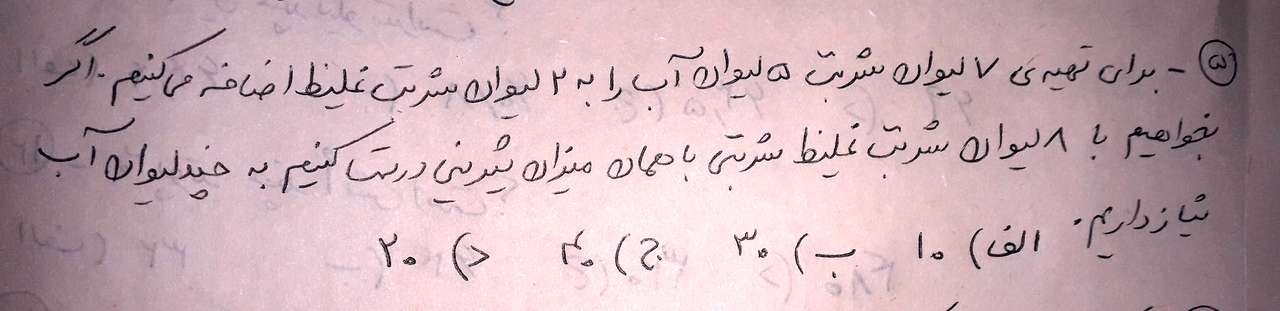 ۵ - برای تهیه‌ی ۷ لیوان شربت ۵ لیوان آب را به ۲ لیوان شربت غلیظ اضافه می‌کنیم. اگر
بخواهیم با ۸ لیوان شربت غلیظ شربتی با همان میزان شیرینی درست کنیم به چند لیوان آب
نیاز داریم. الف) ۱۰ ب) ۳۰ ج) ۴۰ د) ۲۰